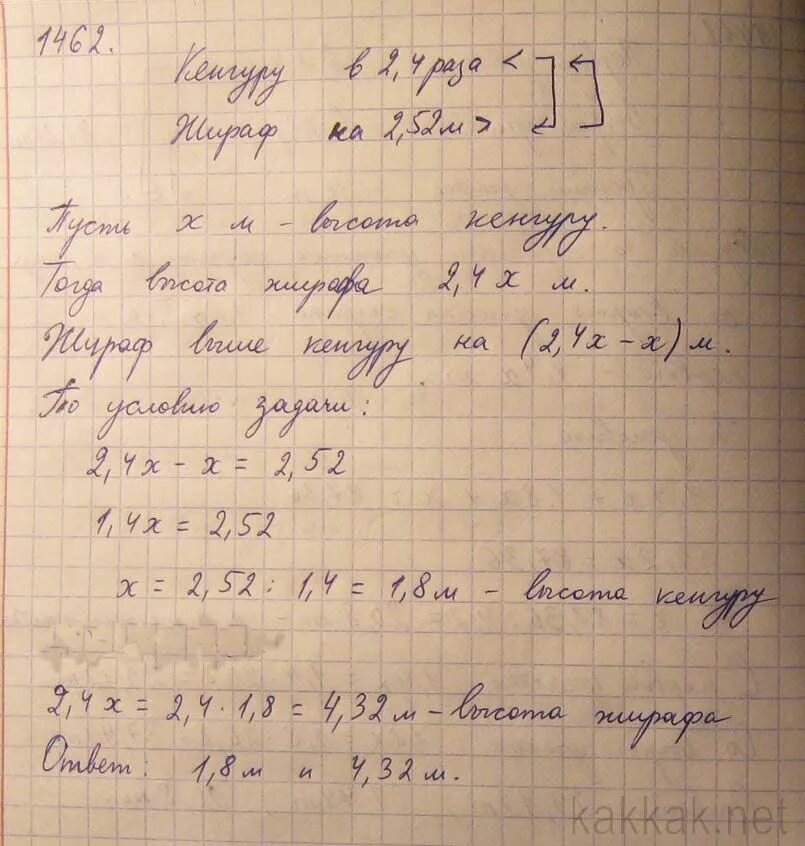 1462.
Кенгуру в 2,4 раза <
Жираф на 2,52 м >
Пусть х м - высота кенгуру.
Тогда высота жирафа 2,4 х м.
Жираф выше кенгуру на (2,4х - х) м.
По условию задачи:
2,4х - х = 2,52
1,4х = 2,52
х = 2,52 : 1,4 = 1,8 м - высота кенгуру
2,4 х = 2,4 · 1,8 = 4,32 м - высота жирафа
Ответ: 1,8 м и 4,32 м.
kakkak.net